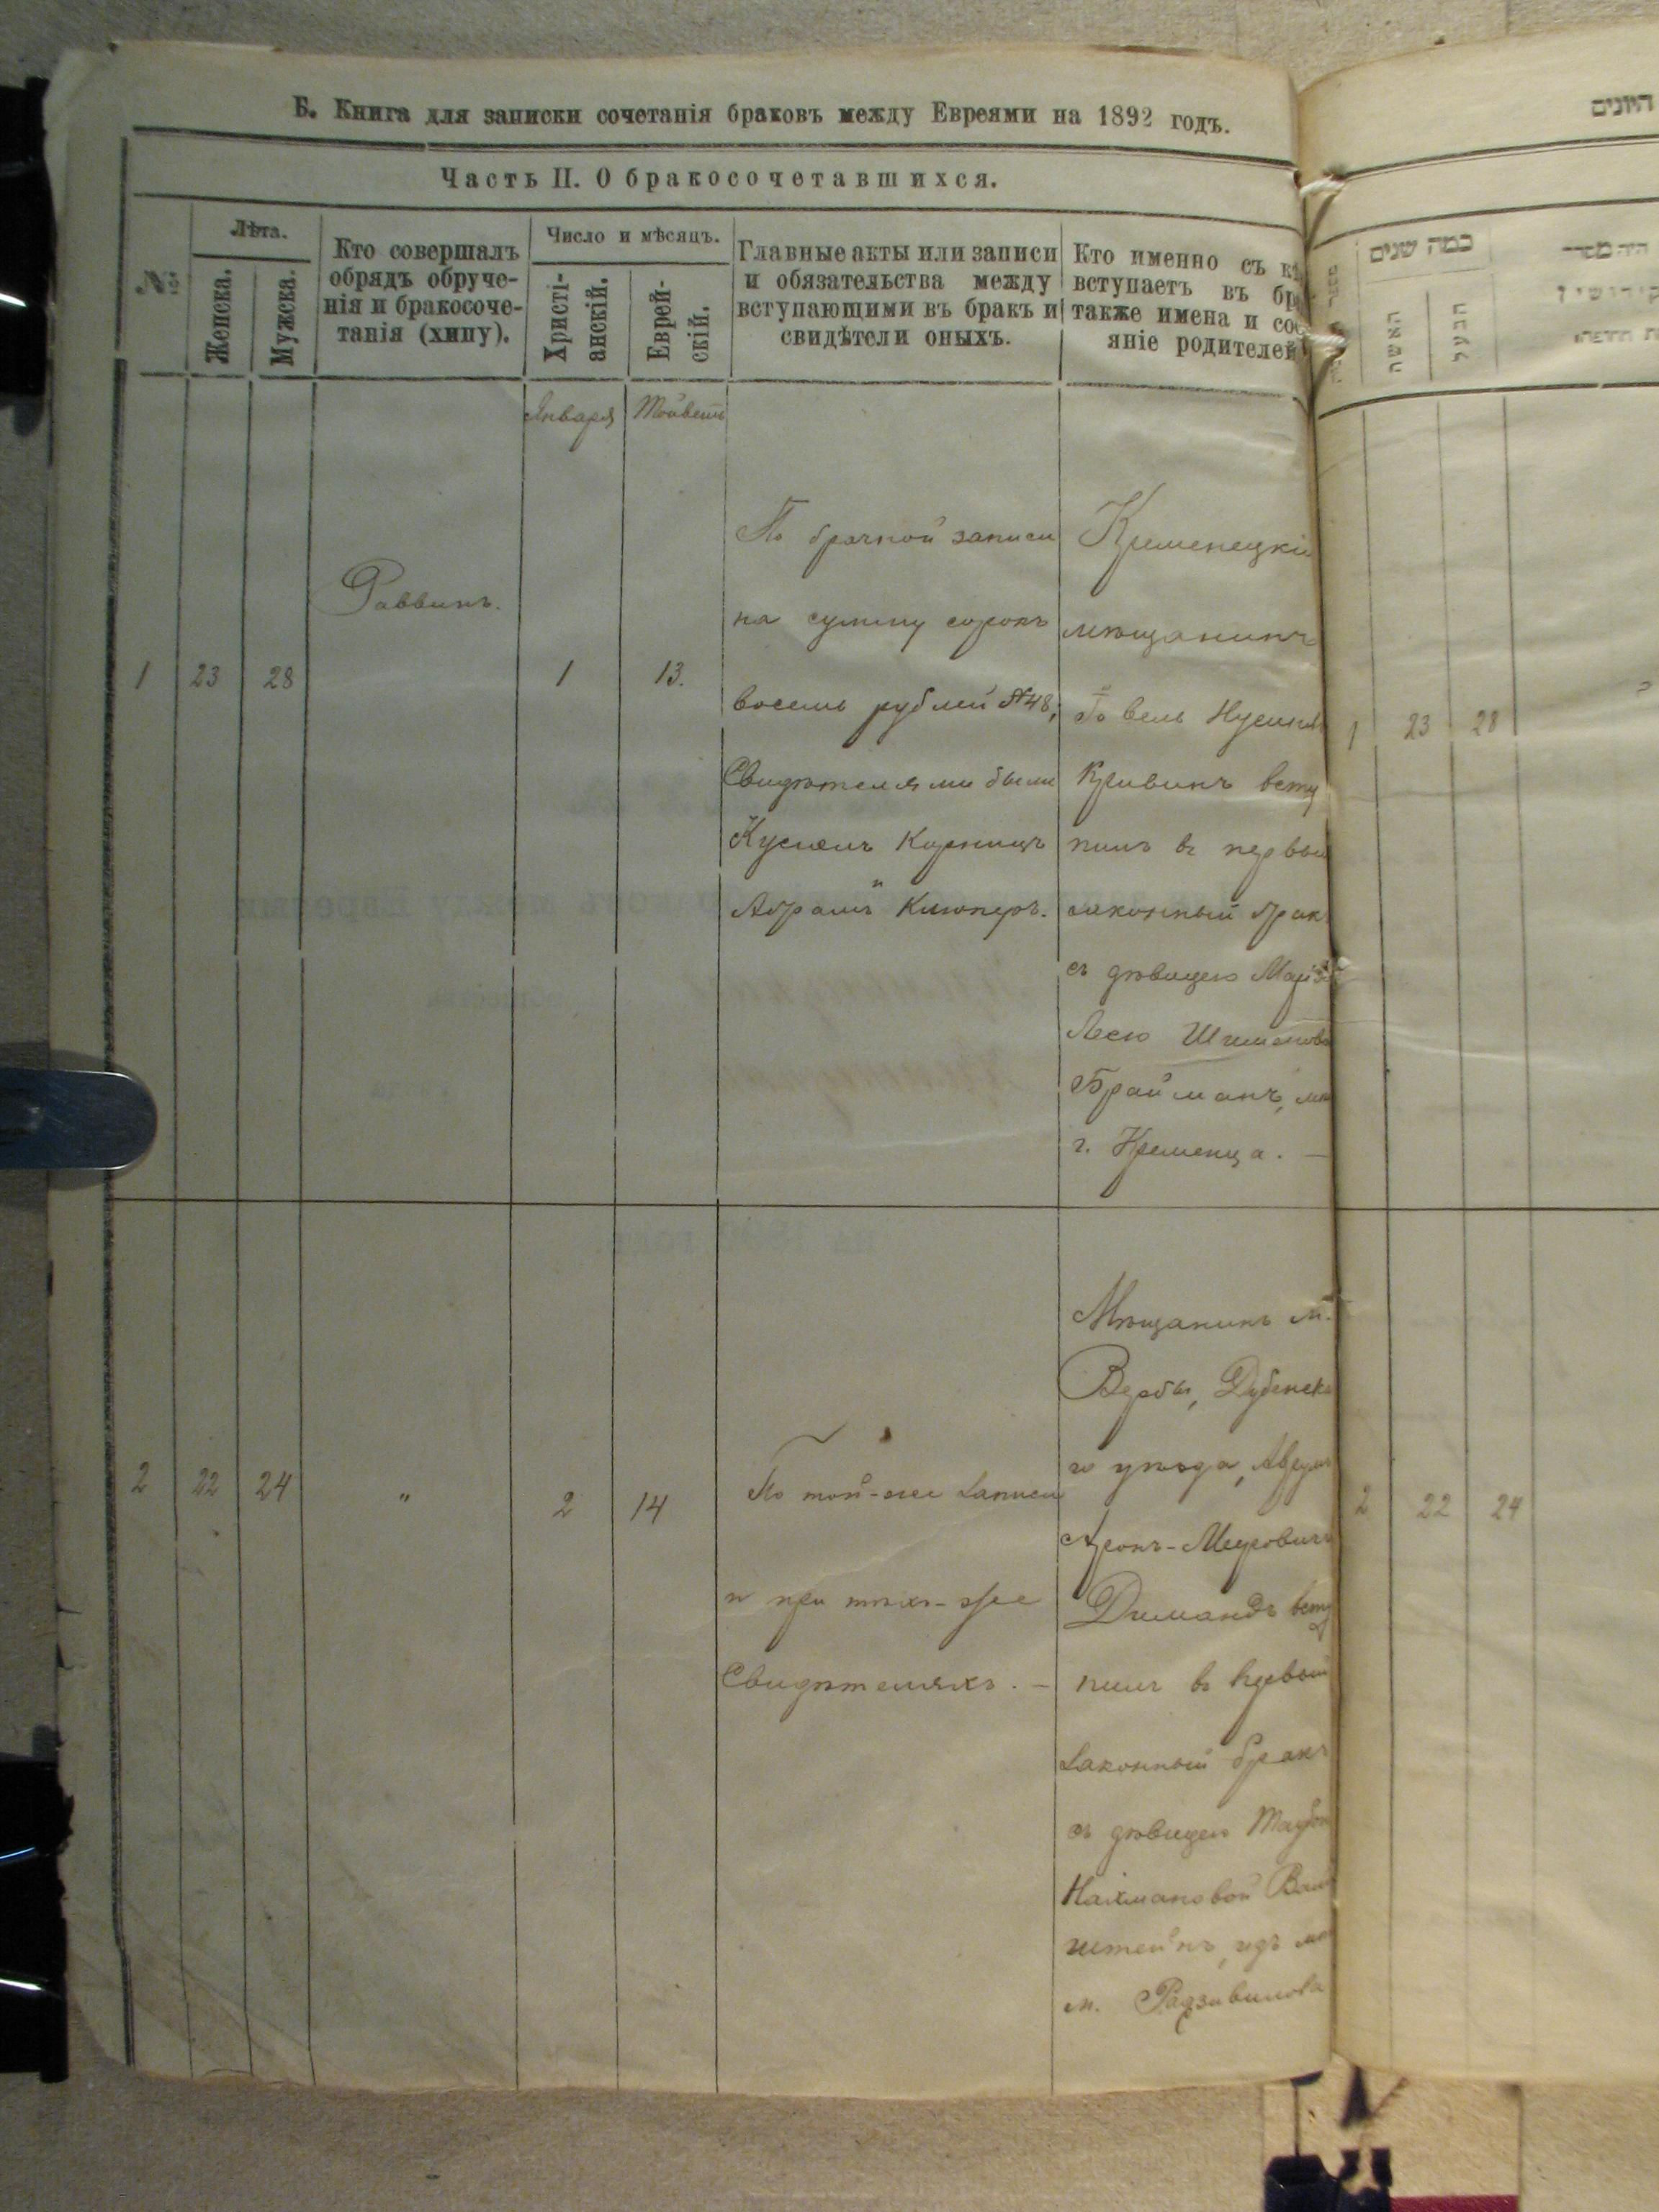 Б. Книга для записки сочетанія браковъ между Евреями на 1892 годъ.
Часть II. О бракосочетавшихся.
№
Лѣта.
Женска.
Мужска.
Кто совершалъ
обрядъ обруче-
нія и бракосоче-
танія (хипу).
Число и мѣсяцъ.
Христі-
анскій.
Еврей-
скій.
Главные акты или записи
и обязательства между
вступающими въ бракъ и
свидѣтели оныхъ.
Кто именно съ
вступаетъ въ
также имена и
яніе родителей
Января
Тойветъ
1
23
28
Раввинъ.
1
13.
По брачной записи
на сумму сорокъ
восемь рублей №48,
Свидѣтелями были
Абрамъ
Кременецкій
мѣщанинъ
Кривинъ всту
пилъ въ первый
законный бракъ
съ дѣвицею
Шимонов
Брайманъ,
г. Кременца. —
2
22
24
"
2
14
По той-же записи
и при тѣхъ-же
Свидѣтеляхъ. —
Мѣщанинъ м.
Вербы, Дубенска
го уѣзда,
Аронъ-Меировичъ
Димандъ всту
пилъ въ первый
законный бракъ
съ дѣвицею
Нахмановой Вай
штейнъ, изъ
м. Радзивилова
היונים
כמה שנים
האשה
הבעל
היה מסדר
1
23
28
2
22
24